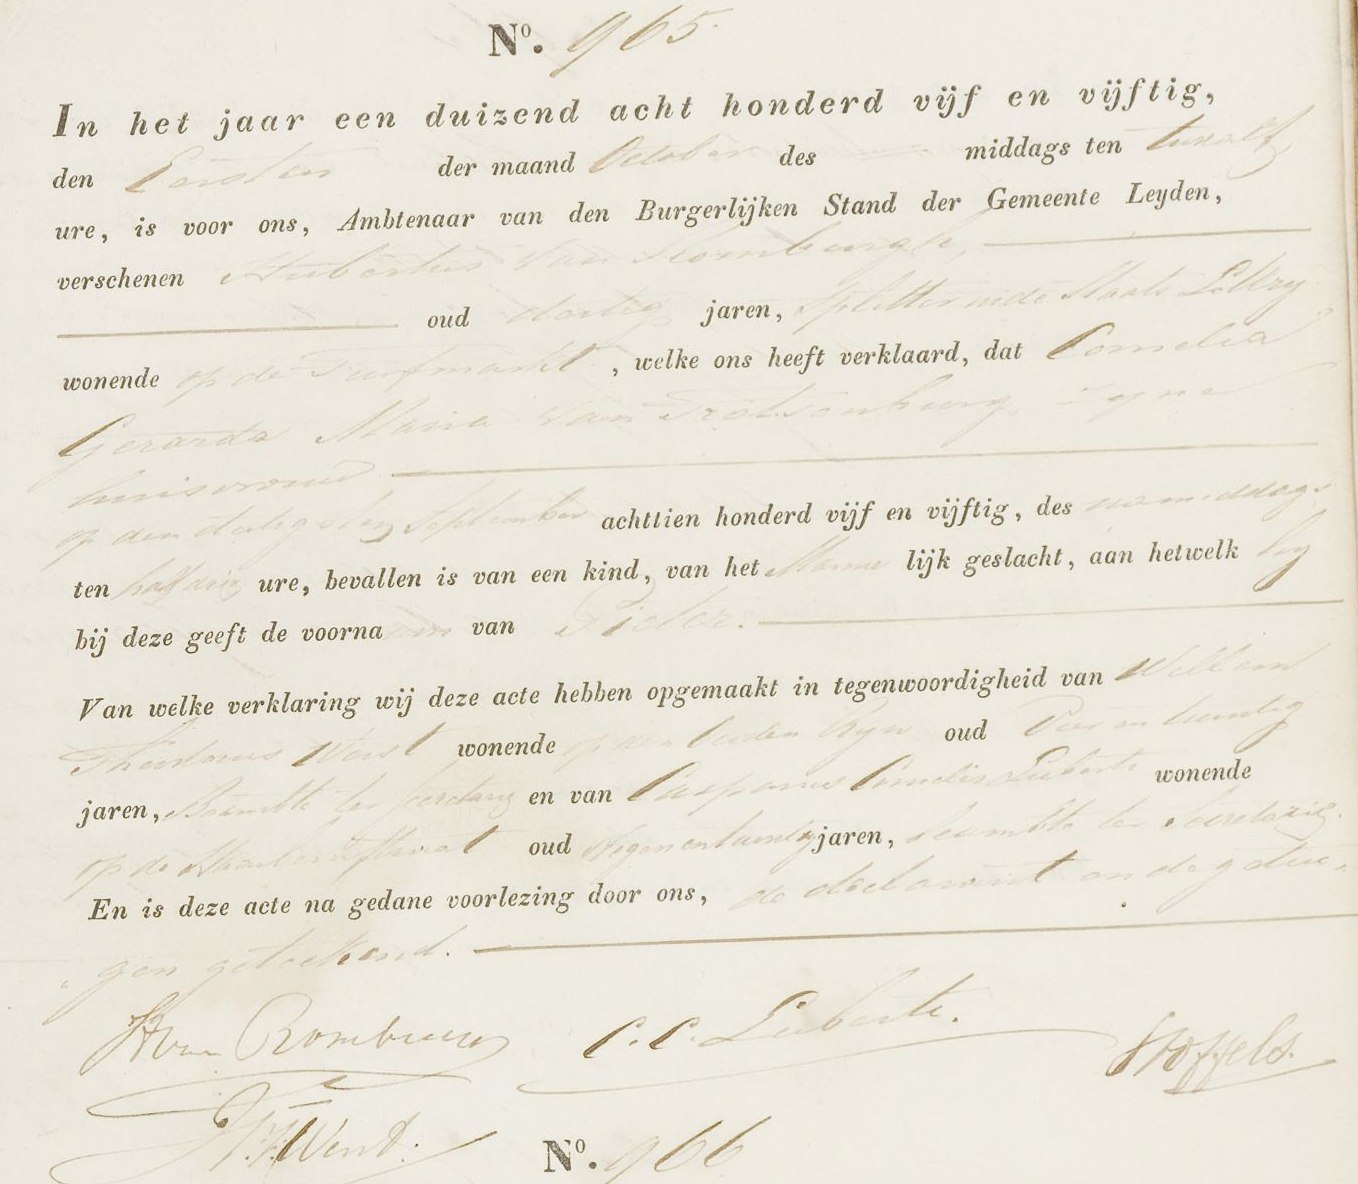 Nº. 965.
In het jaar een duizend acht honderd vijf en vijftig,
den Eersten der maand October des middags ten twaalf
ure, is voor ons, Ambtenaar van den Burgerlijken Stand der Gemeente Leyden,
verschenen Hubertus van Romburgh,
oud dertig jaren, Splitter inde Staats Lottery
wonende op de Turfmarkt, welke ons heeft verklaard, dat Cornelia
Gerarda Maria van Trotsenburg, zyne
huisvrouw
op den dertigsten September achttien honderd vijf en vijftig, des namiddags
ten half drie ure, bevallen is van een kind, van het Manne lijk geslacht, aan hetwelk hy
bij deze geeft de voorna am van Pieter.
Van welke verklaring wij deze acte hebben opgemaakt in tegenwoordigheid van Willem
Theodorus Went wonende op den Ouden Ryn oud Vier en twintig
jaren, Beambte ter Secretary en van Casparus Cornelis Lieberte wonende
op de oud Negen en twintig jaren, beambte ter Secretarie.
En is deze acte na gedane voorlezing door ons, de declarant en de getui-
gen geteekend.
H van Romburgh C. C. Lieberte. Stoffels.
W. T. Went.
Nº. 966